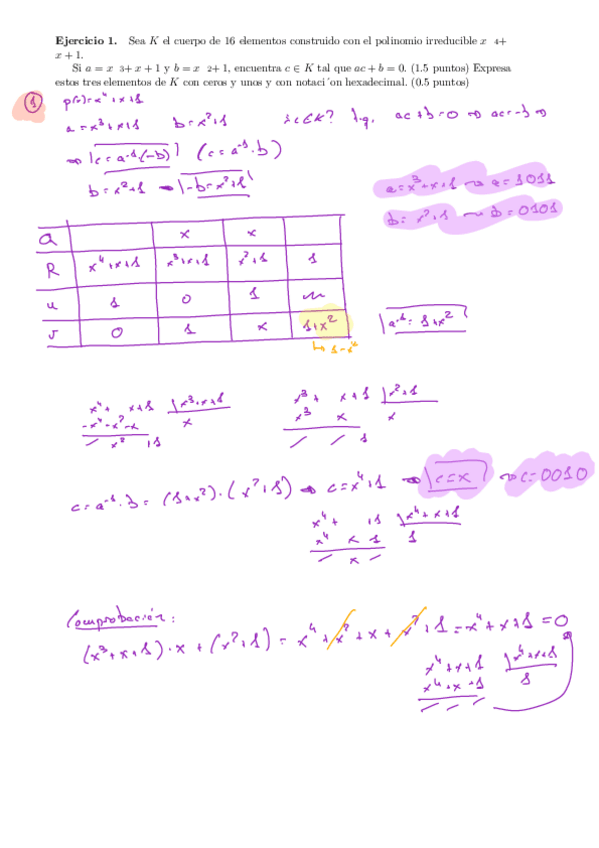 Ejercicio 1. Sea K el cuerpo de 16 elementos construido con el polinomio irreducible x 4+
x + 1.
Si a = x 3+ x + 1 y b = x 2+ 1, encuentra c ∈ K tal que ac + b = 0. (1.5 puntos) Expresa
estos tres elementos de K con ceros y unos y con notaci´on hexadecimal. (0.5 puntos)
① p(x)=x⁴+x+1
a=x³+x+1 b=x²+1 ¿c∈K? t.q. ac+b=0 ⇒ ac=-b ⇒
⇒ c=a⁻¹(-b) (c=a⁻¹·b)
b=x²+1 → -b=x²+1
a=x³+x+1 ⇝ a=1011
b=x²+1 ⇝ b=0101
Q x x
R x⁴+x+1 x³+x+1 x²+1 1
u 1 0 1
v 0 1 x 1+x²
a⁻¹=1+x²
x⁴+ x+1 x³+x+1
-x⁴-x²-x x
x² +1
x³+ x+1 x²+1
x³ x x
1
c=a⁻¹·b=(1+x²)·(x²+1) ⇒ c=x⁴+1 ⇒ c=x ⇝ c=0010
x⁴+ +1 x⁴+x+1
x⁴ x 1 1
x
Comprobación:
(x³+x+1)·x+(x²+1)=x⁴+x²+x+x²+1=x⁴+x+1=0
x⁴+x+1
x⁴+x+1 1